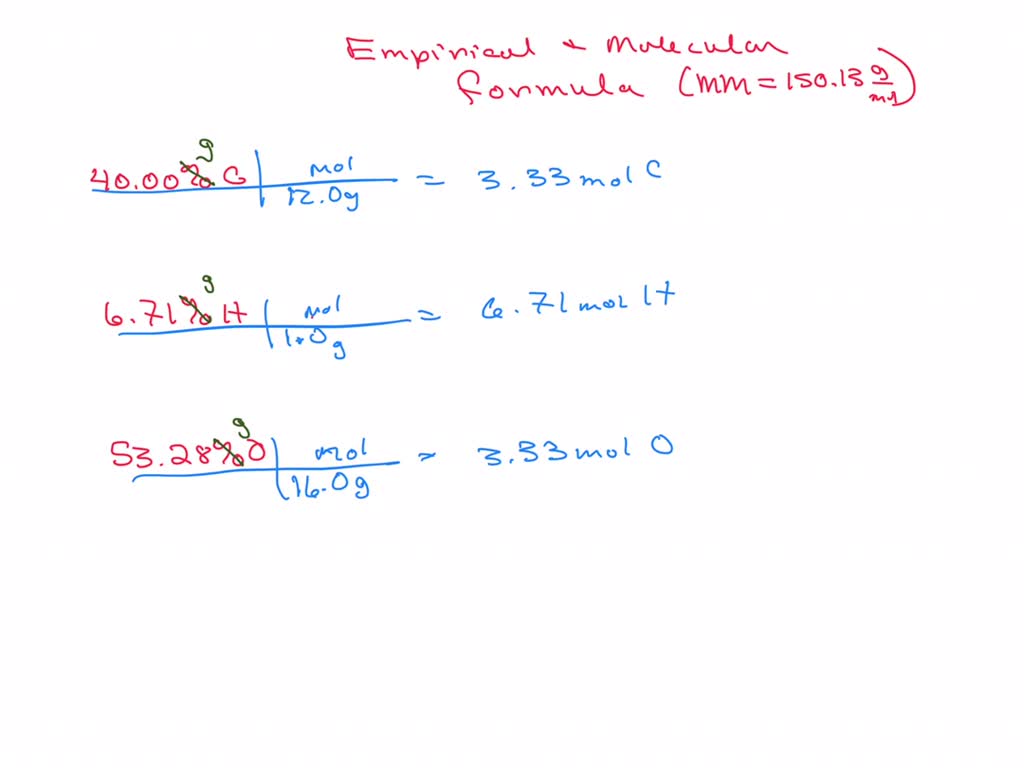 Empirical + Molecular
formula (MM = 150.13 g/mol)
40.00% g C | mol / 12.0g = 3.33 mol C
6.71% g H | mol / 1.0g = 6.71 mol H
53.28% g O | mol / 16.0g = 3.33 mol O